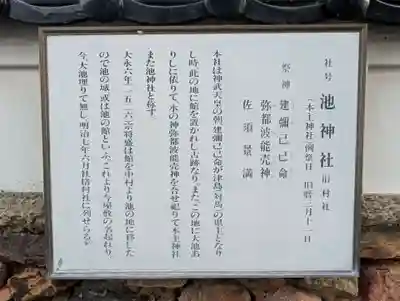 社号 池神社 旧村社
（本主神社）例祭日 旧暦三月十一日
祭神 建彌己己命
弥都波能売神
佐須景満
本社は神武天皇の朝、建彌己己命が津島（対馬）の県主となり
し時、此の地に館を置かれし古跡なり。また、この地に大池あ
りしに依りて、水の神弥都波能売神を合せ祀りて本主神社
また池神社と称す。
大永六年（一五二六）宗将盛は館を中村より池の地に移した
ので池の城、或は池の館といふ。これより今屋敷の名起れり。
今、大池埋りて無し。明治七年六月社格村社に列せらる。